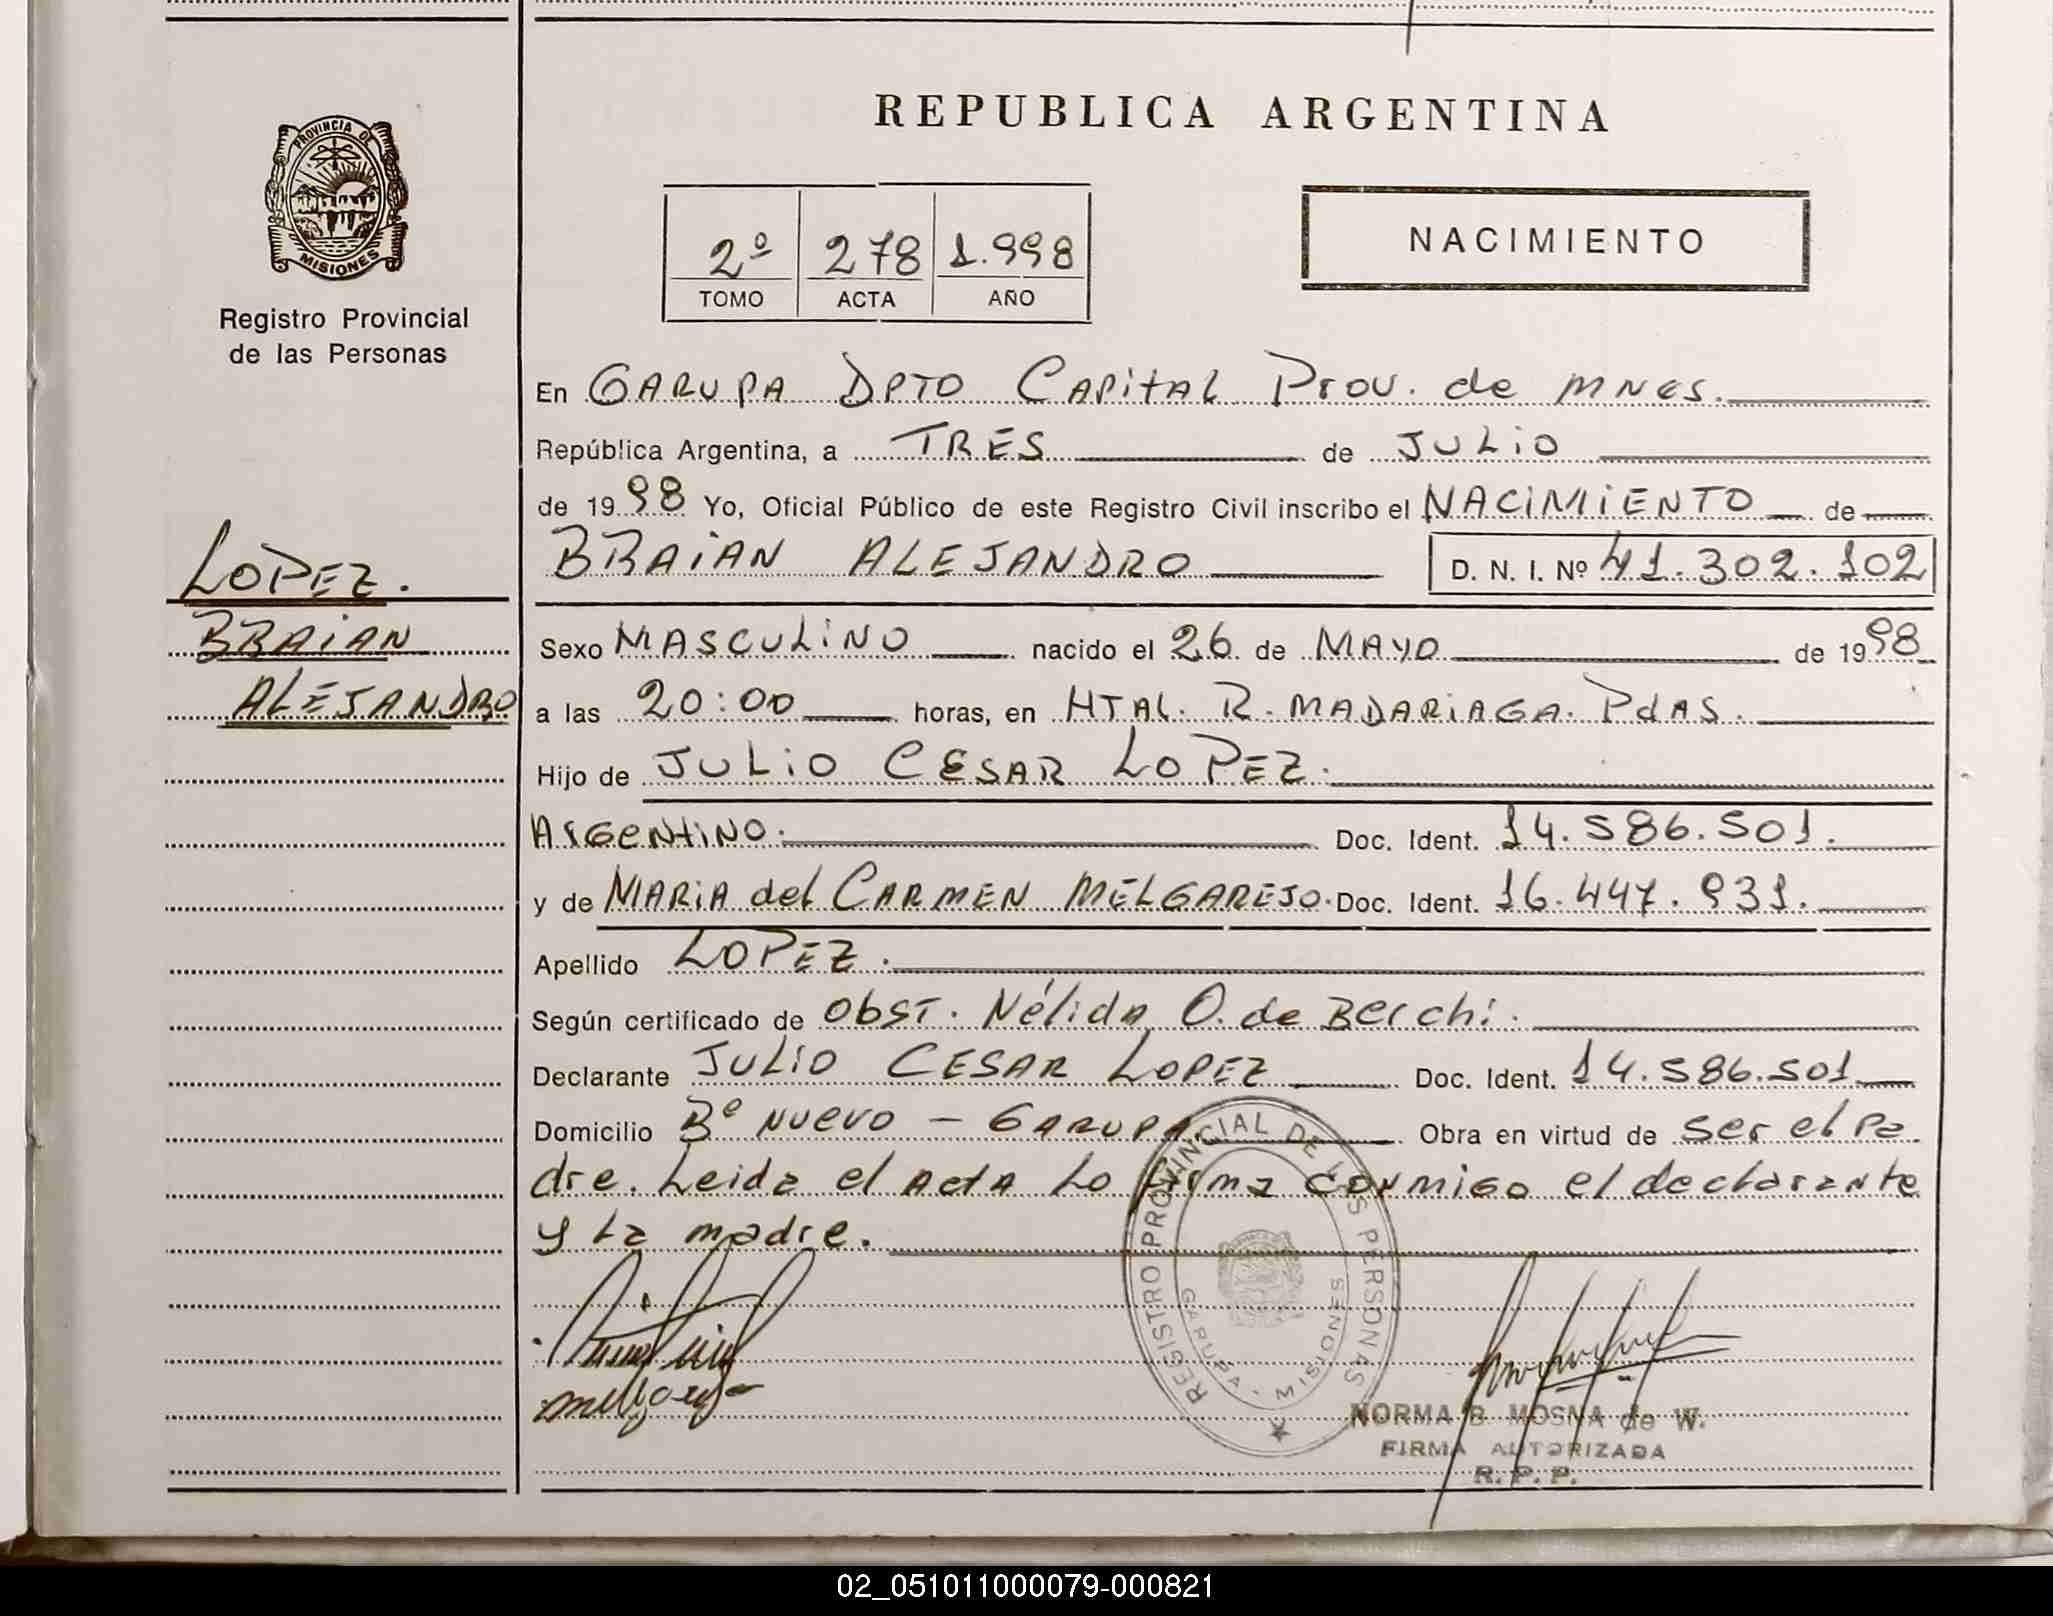 PROVINCIA DE
MISIONES
Registro Provincial
de las Personas
LOPEZ.
BRAIAN
ALEJANDRO
REPUBLICA ARGENTINA
2º 278 1.998
TOMO ACTA AÑO
NACIMIENTO
En GARUPA DPTO CAPITAL Prov. de MNES.
República Argentina, a TRES de JULIO
de 1998 Yo, Oficial Público de este Registro Civil inscribo el NACIMIENTO de
BRAIAN ALEJANDRO D. N. I. Nº 41.302.102
Sexo MASCULINO nacido el 26 de MAYO de 1998
a las 20:00 horas, en HTAL. R. MADARIAGA. PdAS.
Hijo de JULIO CESAR LOPEZ.
ArGeNtiNO. Doc. Ident. 14.586.501.
y de MARIA del CARMEN MELGAREJO. Doc. Ident. 16.447.931.
Apellido LOPEZ.
Según certificado de Obst. Nélida O. de Berchi.
Declarante JULIO CESAR LOPEZ Doc. Ident. 14.586.501
Domicilio Bº NUEVO - GARUPA. Obra en virtud de ser el pa
dre. Leida el acta lo firma conmigo el declarante
y la madre.
REGISTRO PROVINCIAL DE LAS PERSONAS
GARUPA - MISIONES
NORMA B. MOSNA de W.
FIRMA AUTORIZADA
R. P. P.
02_051011000079-000821